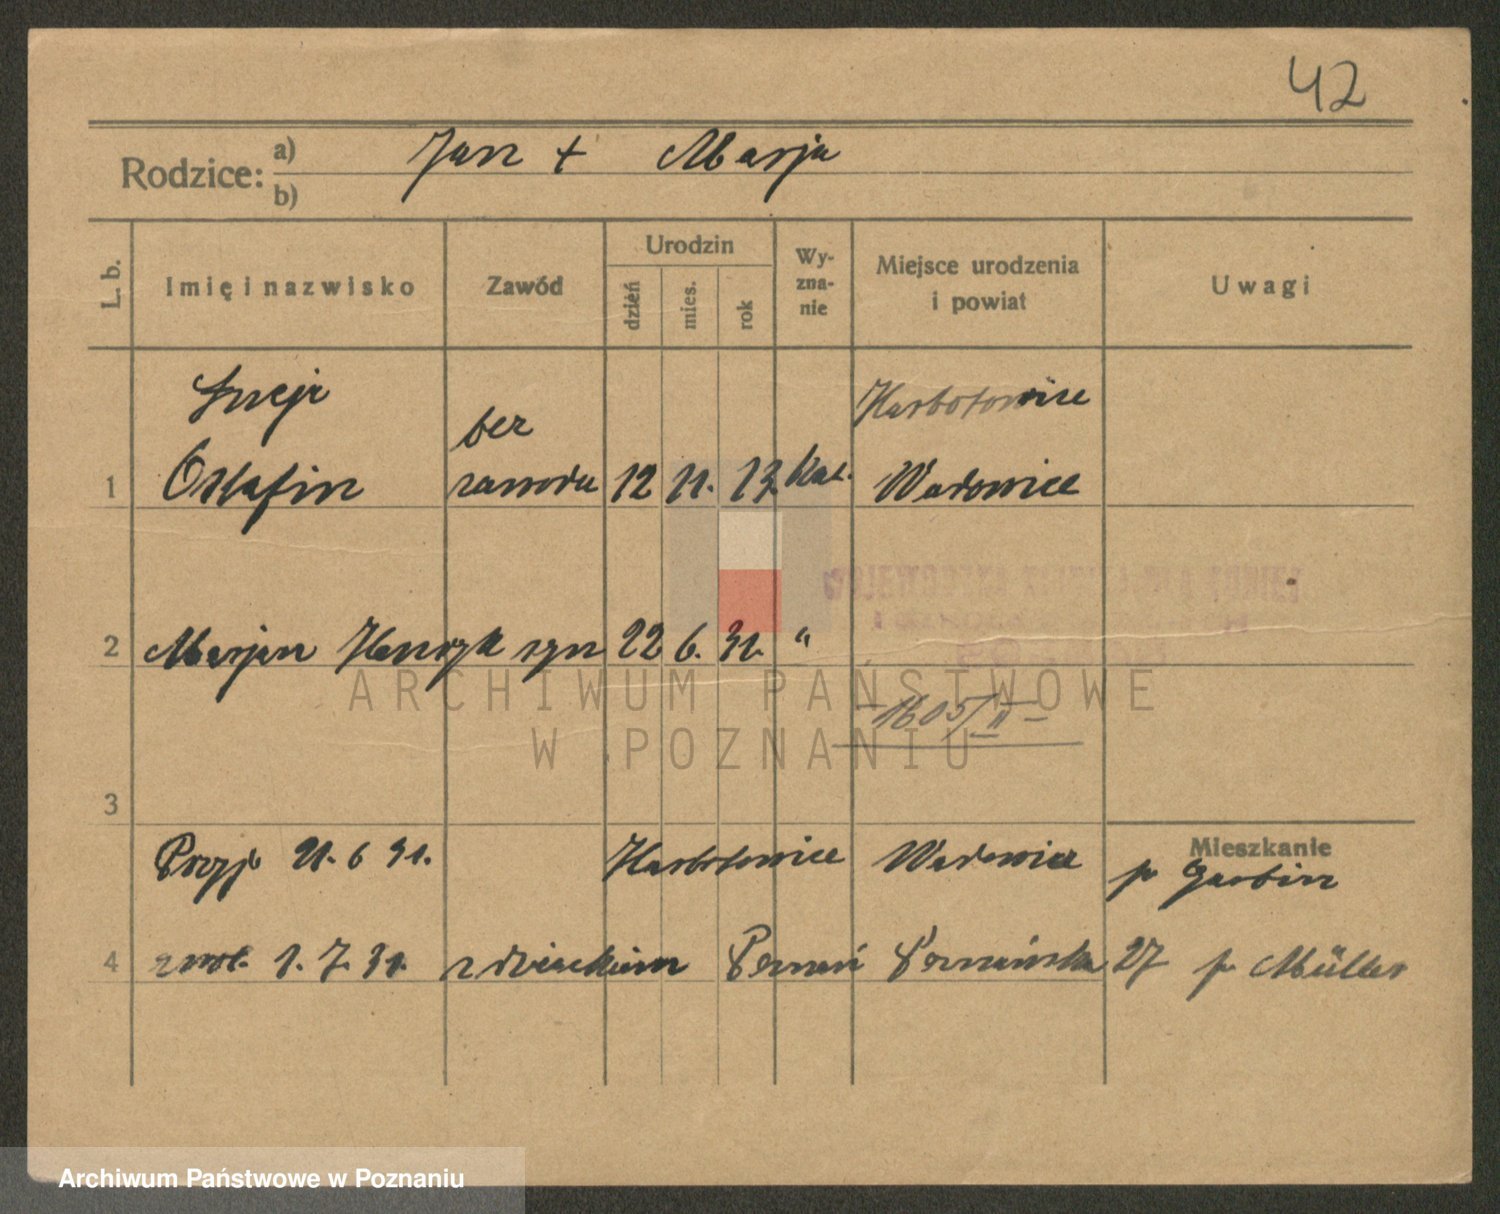 42
Rodzice: a) Jan + Marja
b)
L. b.
Imię i nazwisko
Zawód
Urodzin
dzień
mies.
rok
Wy-
zna-
nie
Miejsce urodzenia
i powiat
Uwagi
Łucja
bez
Harbutowice
1 Ostafin zawodu 12 11. 13. kat. Wadowice
2 Marjan Henryk syn 22 6. 31. "
ARCHIWUM PAŃSTWOWE
1605/II
W POZNANIU
3
Mieszkanie
Przyb 21. 6 31. Harbutowice Wadowice p. Garbin
4 zwol. 1. 7. 31. z dzieckiem Poznań Poznańska 27 p. Müller
Archiwum Państwowe w Poznaniu